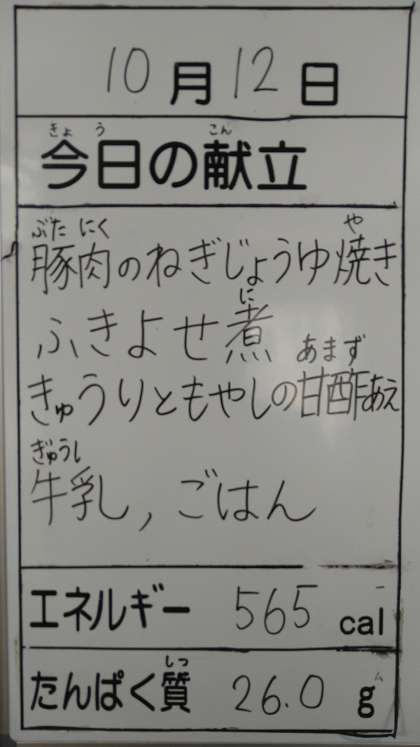 10月12日
きょう こん
今日の献立
ぶた にく や
豚肉のねぎじょうゆ焼き
に
ふきよせ煮
あまず
きゅうりともやしの甘酢あえ
ぎゅうし
牛乳, ごはん
エネルギー 565 cal
しつ
たんぱく質 26.0 g